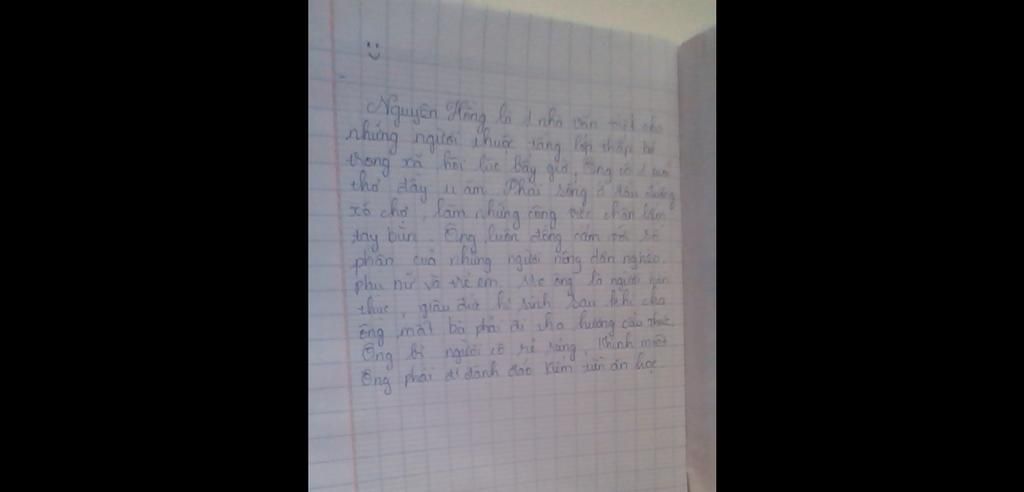 Nguyên Hồng là 1 nhà văn viết cho
những người thuộc tầng lớp thấp bé
trong xã hội lúc bấy giờ, Ông có 1 tuổi
thơ đầy u ám. Phải sống ở đầu đường
xó chợ, làm những công việc chân lấm
tay bùn. Ông luôn đồng cảm với số
phận của những người nông dân nghèo,
phụ nữ và trẻ em. Mẹ ông là người
thục, giàu đức hi sinh. Sau khi cha
ông mất bà phải đi tha hương cầu thực
Ông bị người cô rẻ rúng, khinh miệt
Ông phải đi đánh đáo kiếm tiền ăn học.